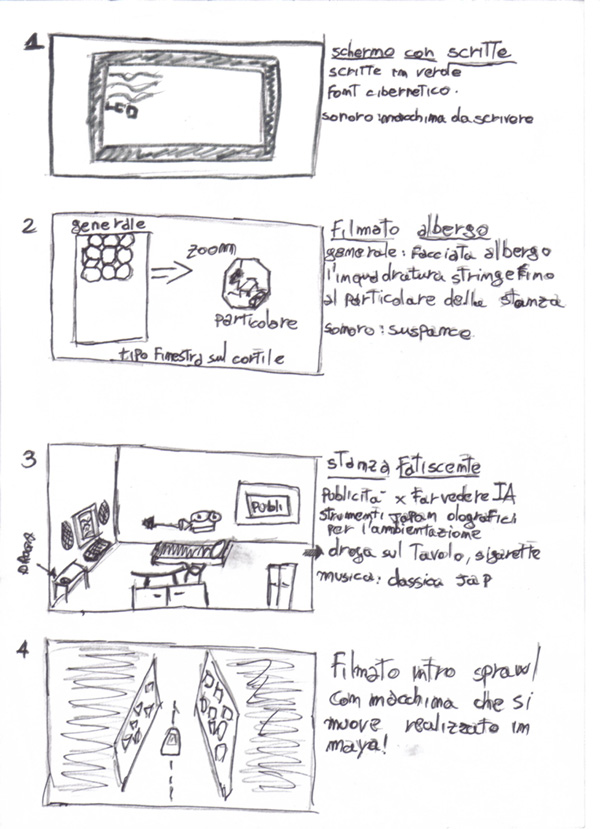 1
schermo con scritte
scritte in verde
font cibernetico.
sonoro: macchina da scrivere
2
generale
zoom
particolare
tipo finestra sul cortile
Filmato albergo
generale: facciata albergo
l'inquadratura stringe fino
al particolare della stanza
sonoro: suspance
3
Publi
DROGA
stanza Fatiscente
Publicità x far vedere IA
strumenti Japan olografici
per l'ambientazione
droga sul Tavolo, sigarette
musica: classica Jap
4
Filmato intro sprawl
con macchina che si
muove realizzato in
maya!